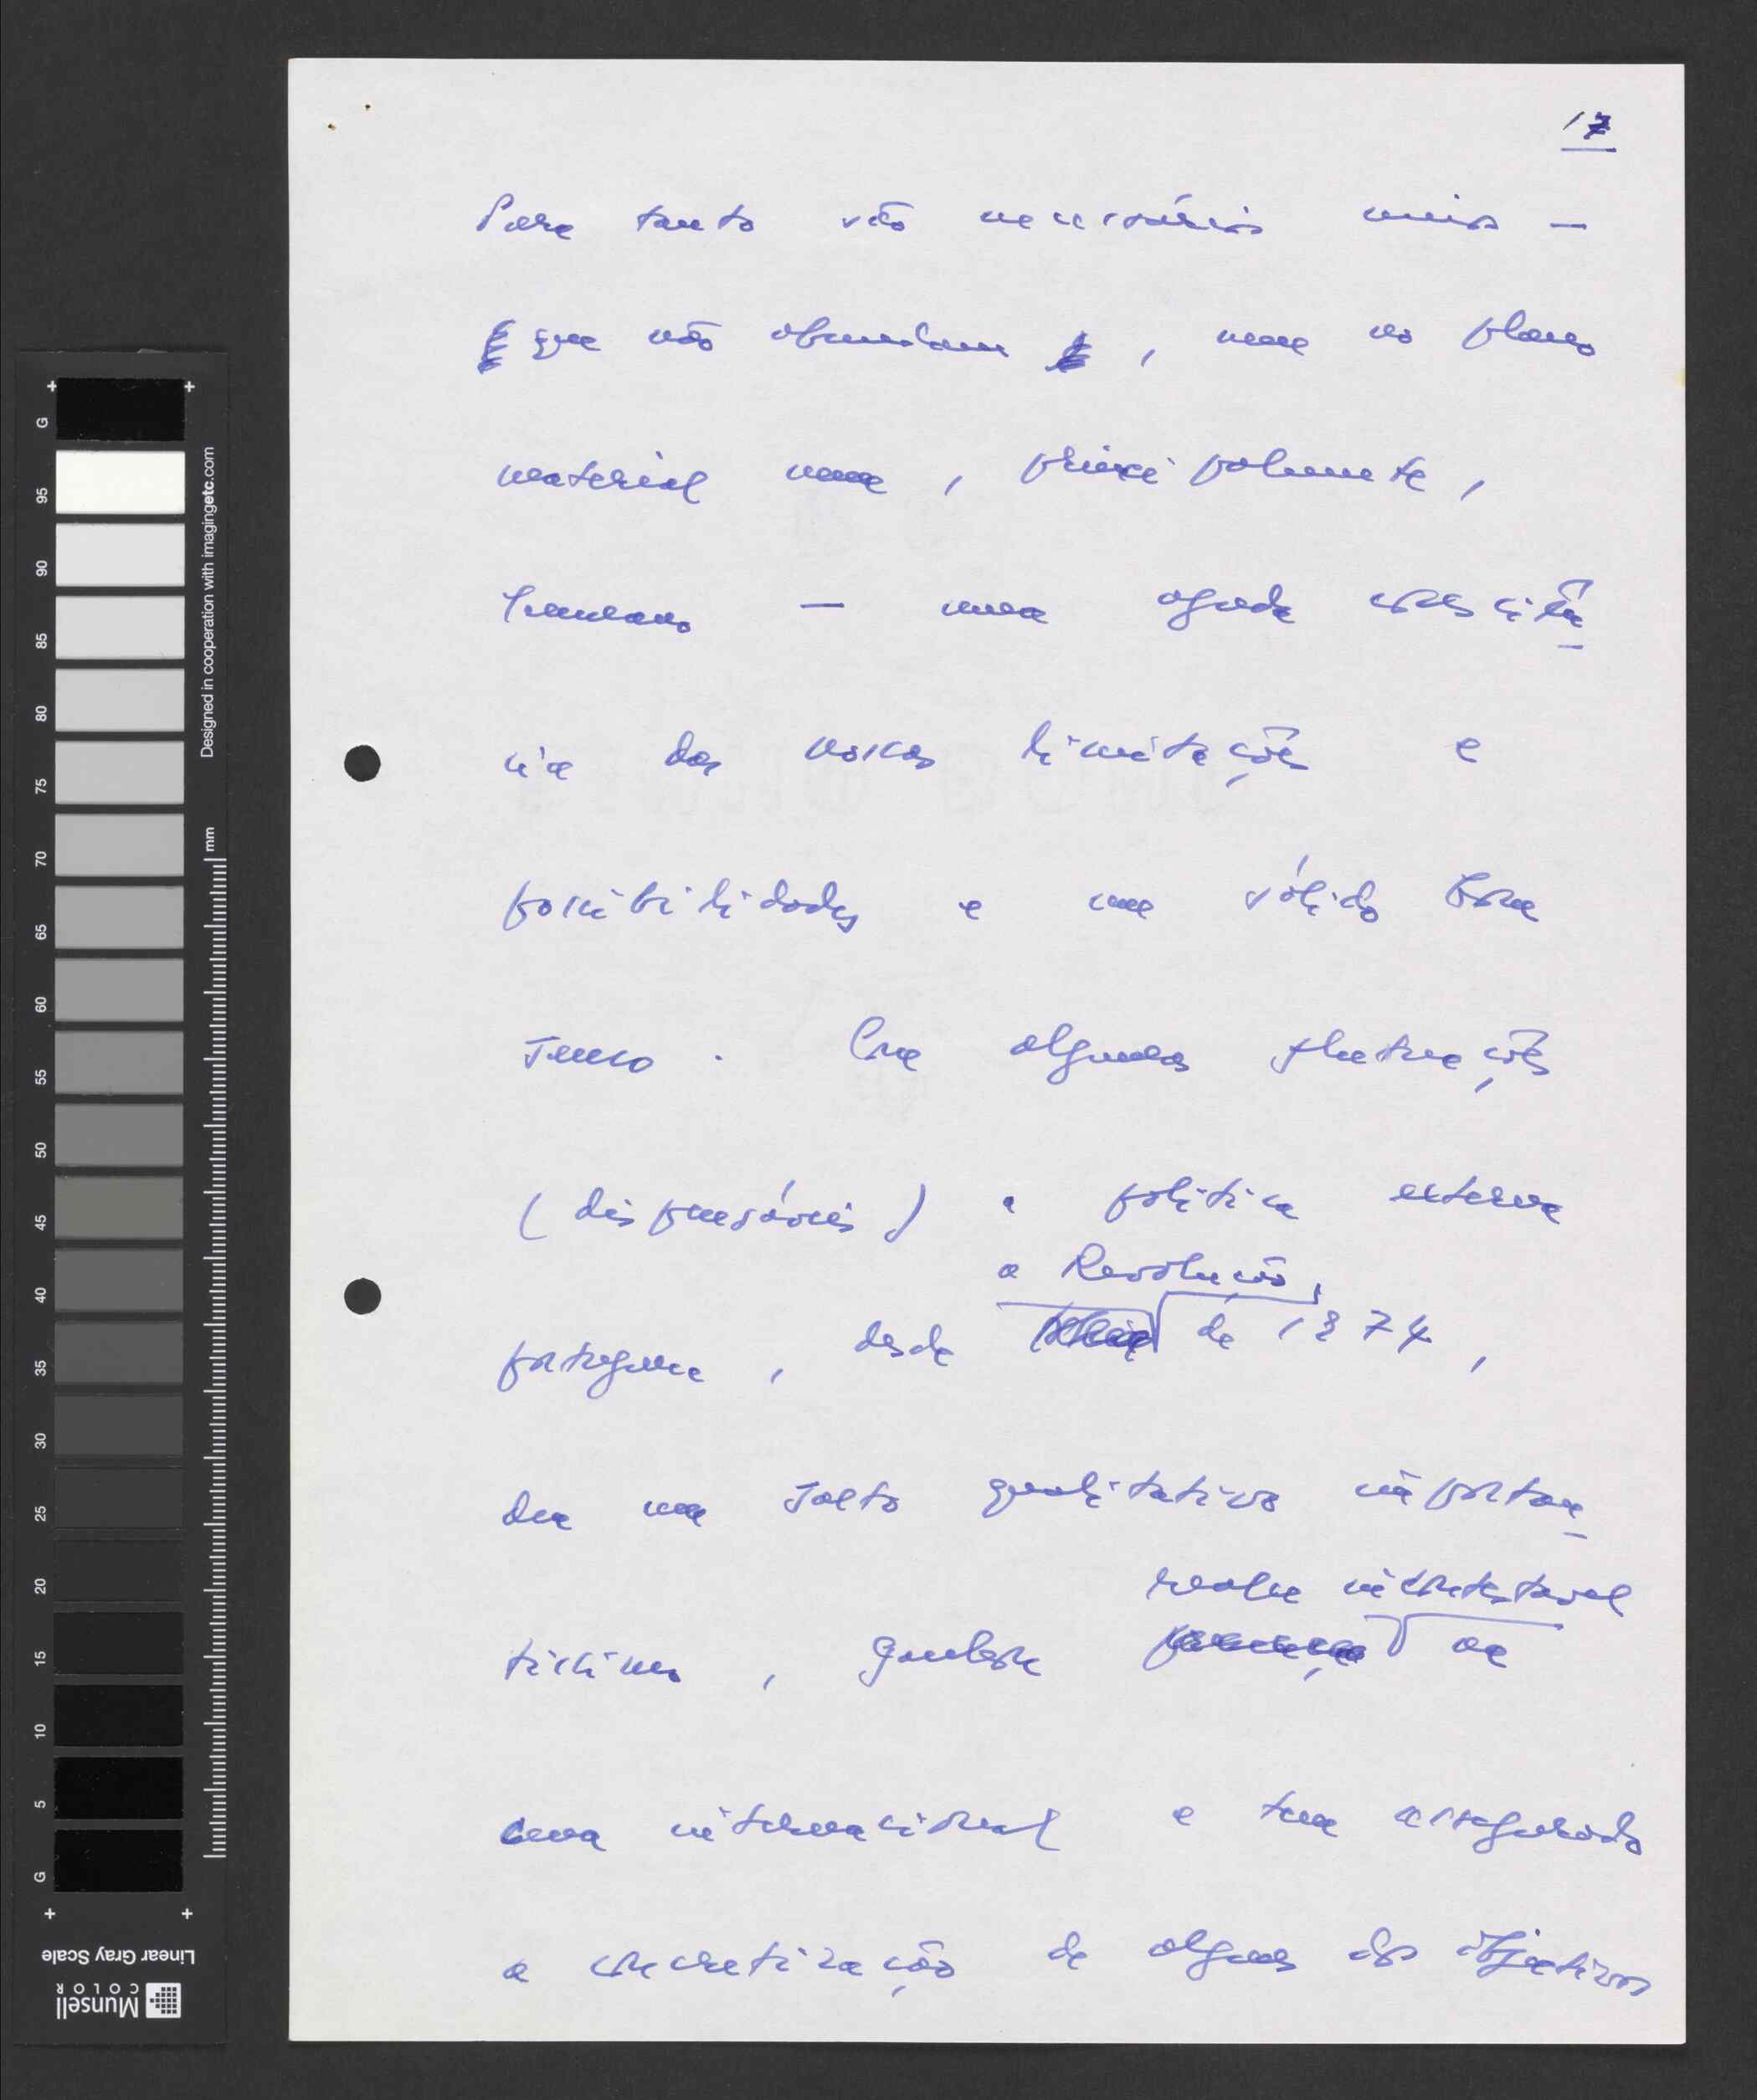 17
Para tanto são necessários meios —
que não abundam, nem no plano
material nem, principalmente,
humano — uma aguda consciên-
cia das nossas limitações e
possibilidades e um sólido bom
senso. Com algumas flutuações
(dispensáveis) a política externa
a Revolução,
portuguesa, desde de 1974,
deu um salto qualitativo importan-
realce incontestável
tíssimo, ganhou na
cena internacional e tem assegurado
a concretização de alguns dos objectivos
G
95
90
85
80
75
70
65
60
55
50
45
40
35
30
25
20
15
10
5
G
Designed in cooperation with imagingetc.com
mm
Linear Gray Scale
Munsell
COLOR